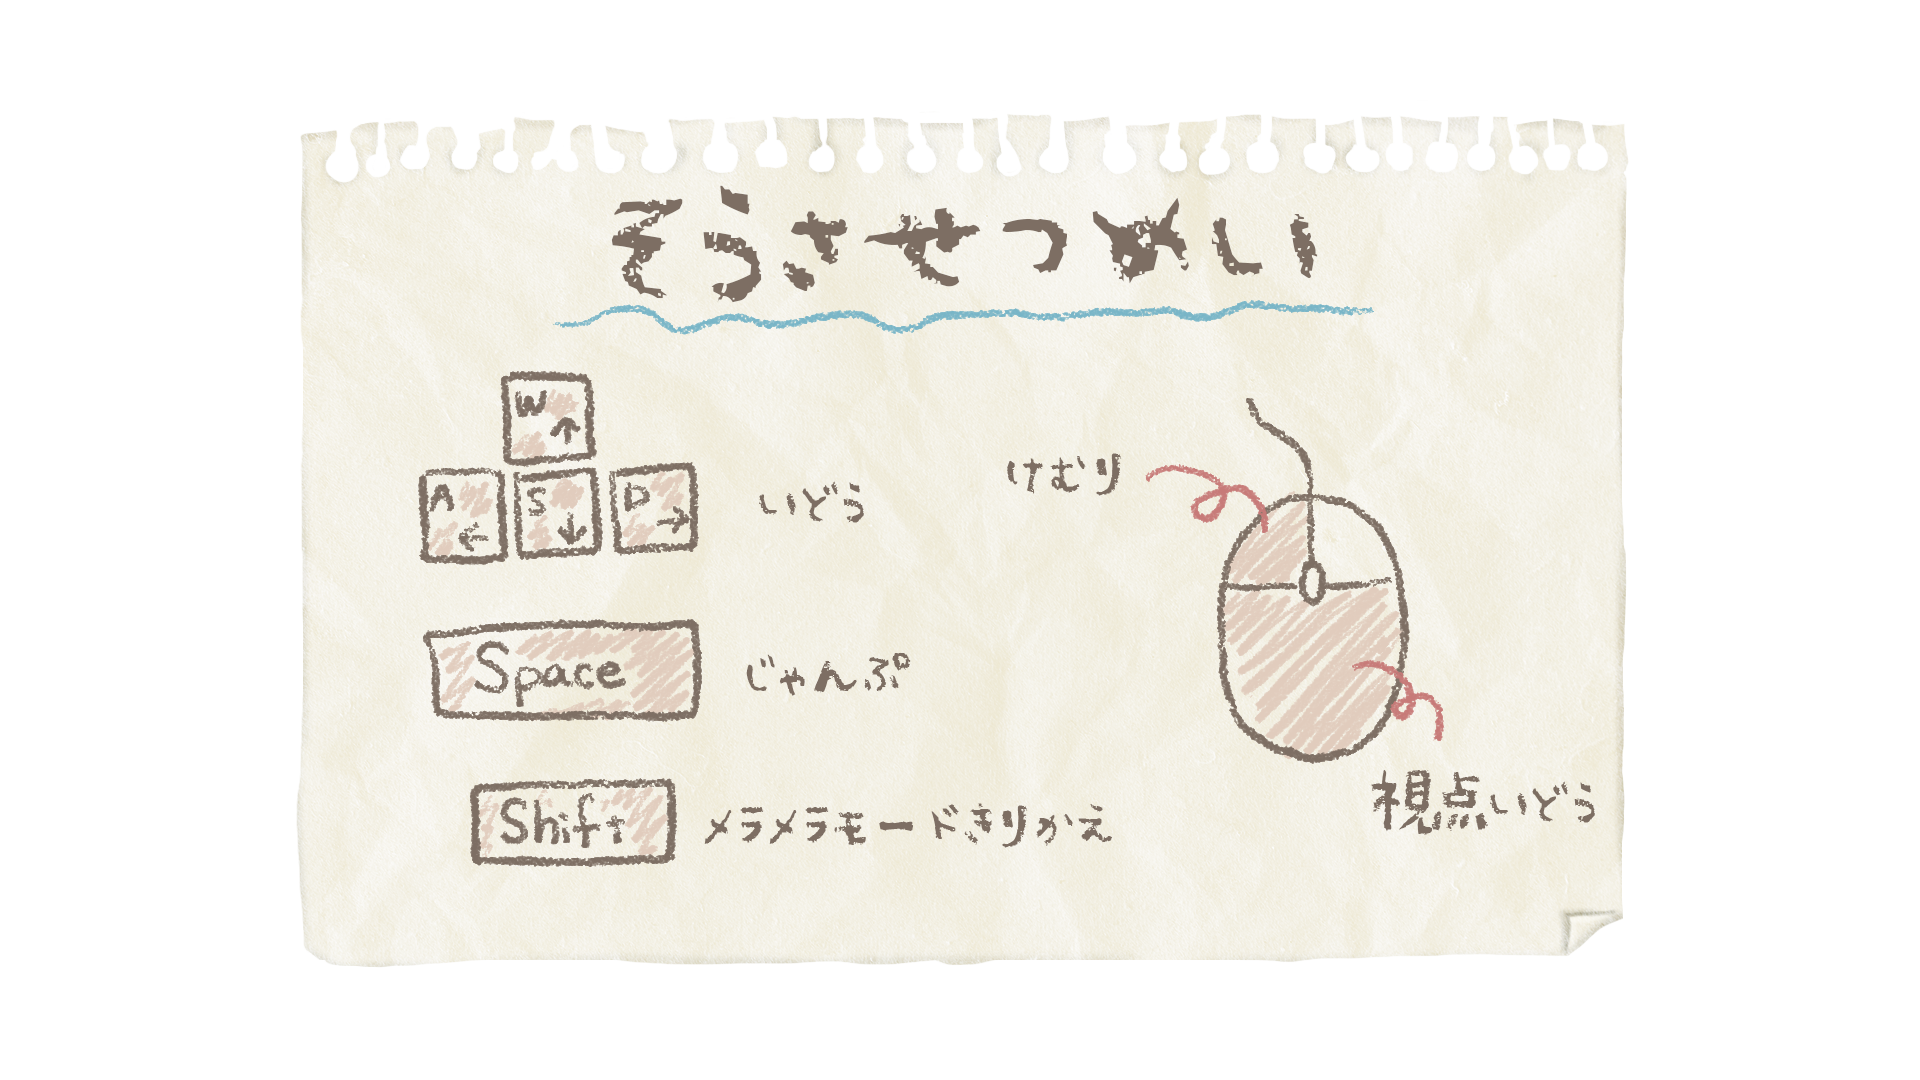 そうさせつめい
W
↑
A
←
S
↓
D
→
いどう
Space
じゃんぷ
Shift
メラメラモードきりかえ
けむり
視点いどう